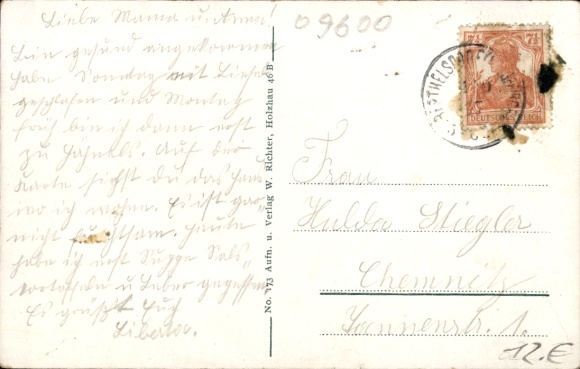 Liebe Mama u. Anna!
Bin gesund angekommen
habe Sonntag mit Liesel
geschlafen und Montag
früh bin ich dann erst
zu Hahnels. Auf der
Karte siehst du das Haus
wo ich wohne. Es ist gar
nicht furchtsam. Heute
habe ich erst Suppe Salz-
kartoffeln u Leber gegessen
Es grüßt Euch
09600
7½ 7½
DEUTSCHES REICH
No. 173 Aufn. u. Verlag W. Richter, Holzhau 46 B
Frau
Hulda Stiegler
Chemnitz
12.€